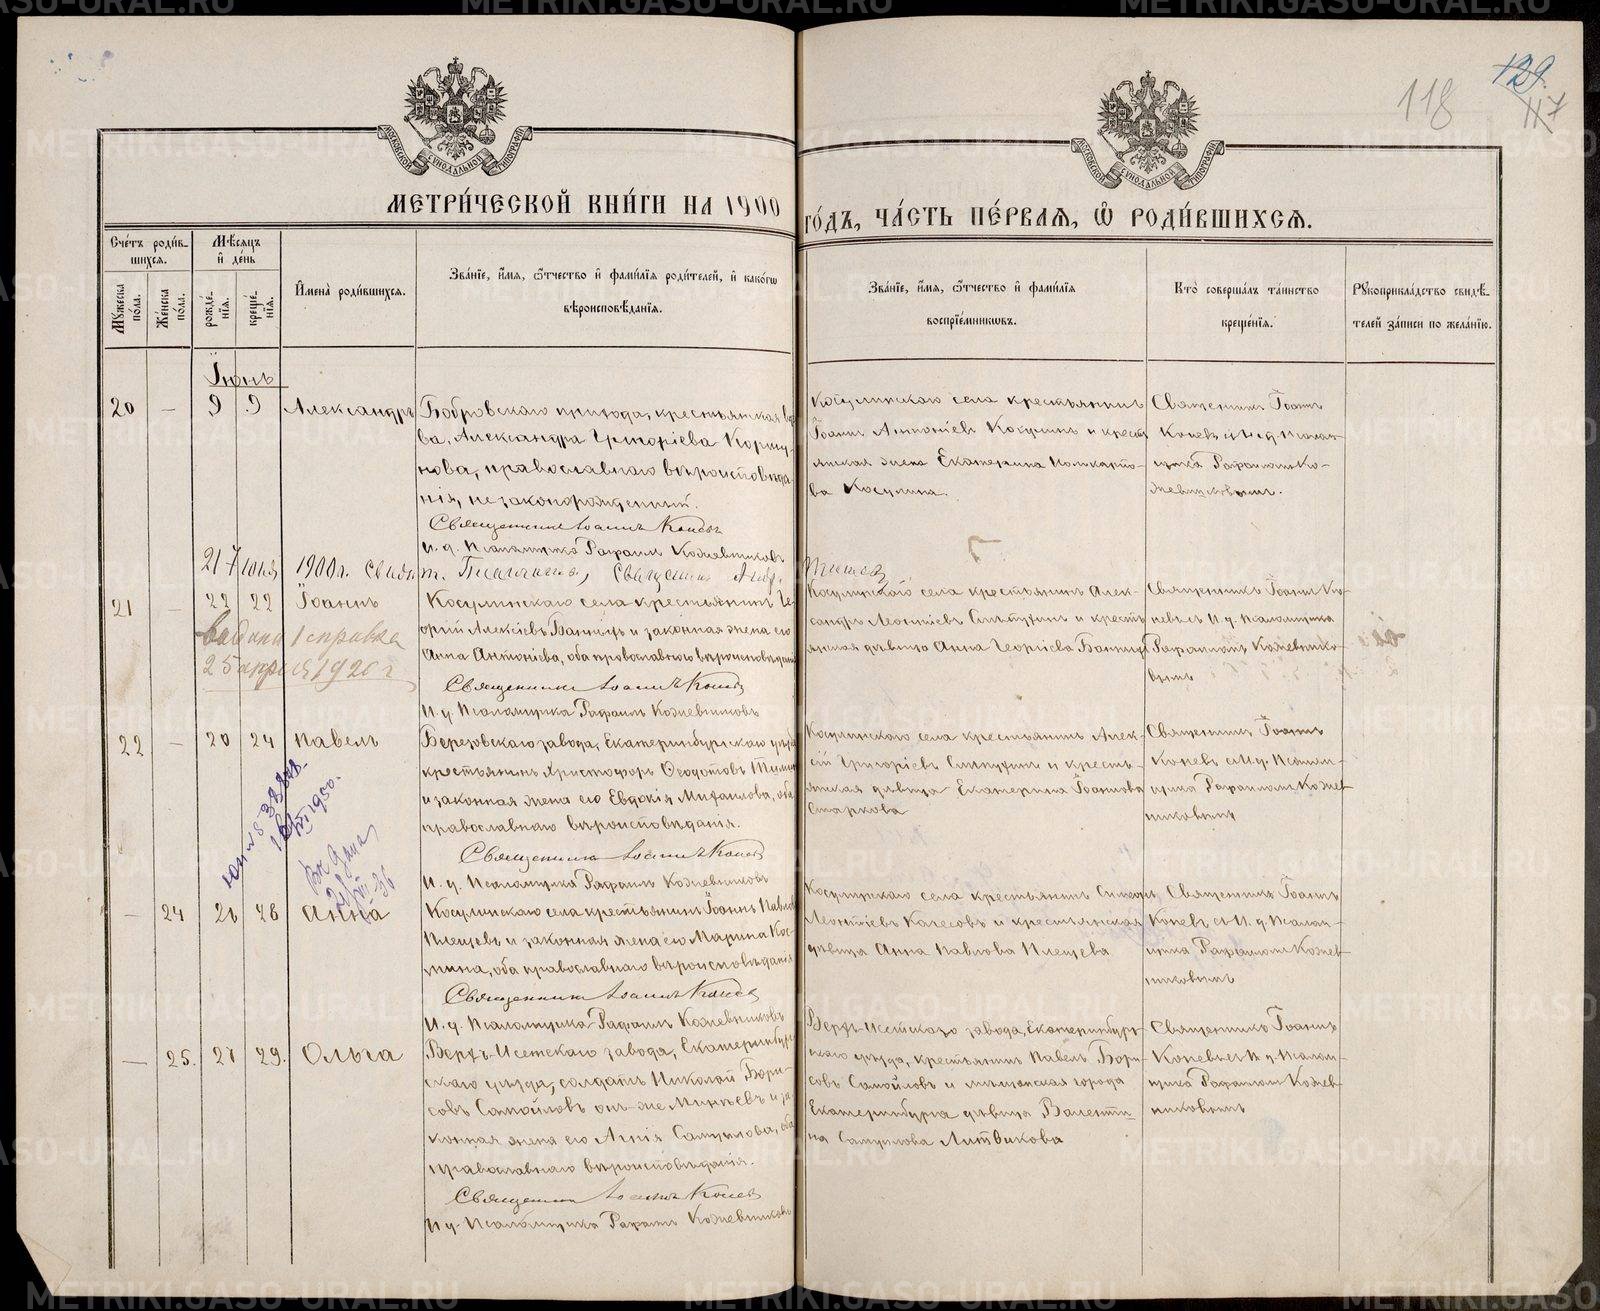 118
129
117
МЕТРИ́ЧЕСКОЙ КНИ́ГИ НА 1900
ГО́ДЪ, ЧА́СТЬ ПЕ́РВАЯ, Ѽ РОДИ́ВШИХСЯ.
Сче́тъ роди́в-
шихся.
Мужеска по́ла.
Же́нска по́ла.
Мѣ́сяцъ и де́нь
рожде́-
нїя.
креще́-
нїя.
Имена̀ роди́вшихся.
Зва́нїе, и́мя, ѻ́тчество и фами́лїя роди́телей, и како́гѡ
вѣроисповѣ́данїя.
Зва́нїе, и́мя, ѻ́тчество и фами́лїя
воспрїе́мниковъ.
Кто̀ соверша́лъ та́инство
креще́нїя.
Рукоприкла́дство свидѣ́-
телей за́писи по жела́нїю.
Іюнь
20 — 9 9 Александръ
Бобровскаго прихода, крестьянская
ва, Александра Григоріева Коршу-
нова, православнаго вѣроисповѣда-
нія, незаконорожденный.
Священникъ Іоаннъ Коневъ
И. д. Псаломщика Рафаилъ Кожевниковъ
Косулинскаго села крестьянинъ
Іоаннъ Антоніевъ Косулинъ и крест-
янская жена Екатерина Поликарпо-
ва Косулина.
Священникъ Іоаннъ
Коневъ съ И. д. Псалом-
щика Рафаиломъ Ко-
жевниковымъ.
1900 г.
21 — 22 22 Іоаннъ
Косулинскаго села крестьянинъ Ге-
оргій Алексіевъ и законная жена его
Анна Антоніева, оба православнаго вѣроисповѣданія
Священникъ Іоаннъ Коневъ
И. д. Псаломщика Рафаилъ Кожевниковъ
Выдана справка
25 апреля 1920 г
Косулинскаго села крестьянинъ Алек-
сандръ Леонтіевъ и крест-
янская дѣвица Анна Георгіева
Священникъ Іоаннъ Ко-
невъ съ И. д. Псаломщика
Рафаиломъ Кожевнико-
вымъ
22 — 20 24 Павелъ
Березовскаго завода, Екатеринбургскаго уѣзда
крестьянинъ Христофоръ Ѳеодотовъ
и законная жена его Евдокія Михаилова, оба
православнаго вѣроисповѣданія.
Священникъ Іоаннъ Коневъ
И. д. Псаломщика Рафаилъ Кожевниковъ
Косулинскаго села крестьянинъ Алек-
сій Григоріевъ и кресть-
янская дѣвица Екатерина Іоаннова
Старкова
Священникъ Іоаннъ
Коневъ съ И. д. Псалом-
щика Рафаиломъ Кожев-
никовымъ
1950.
— 24 26 26 Анна
Косулинскаго села крестьянинъ Іоаннъ Павловъ
Плещевъ и законная жена его Марина Кос-
мина, оба православнаго вѣроисповѣданія
Священникъ Іоаннъ Коневъ
И. д. Псаломщика Рафаилъ Кожевниковъ
Косулинскаго села крестьянинъ Симеонъ
Леонтіевъ Колесовъ и крестьянская
дѣвица Анна Павлова Плещева
Священникъ Іоаннъ
Коневъ съ И. д. Псалом-
щика Рафаиломъ Кожев-
никовымъ
— 25. 27 29. Ольга
Верхъ-Исетскаго завода, Екатеринбург-
скаго уѣзда, солдатъ Николай Бори-
совъ Самойловъ онъ-же Минѣевъ и за-
конная жена его Агнія Самуилова, оба
православнаго вѣроисповѣданія.
Священникъ Іоаннъ Коневъ
И д. Псаломщика Рафаилъ Кожевниковъ
Верхъ-Исетскаго завода, Екатеринбург-
скаго уѣзда, крестьянинъ Павелъ Бори-
совъ Самойловъ и мѣщанская города
Екатеринбурга дѣвица Валенти-
на Самуилова Литвикова
Священникъ Іоаннъ
Коневъ съ И. д. Псалом-
щика Рафаиломъ Кожев-
никовымъ
METRIKI.GASO-URAL.RU